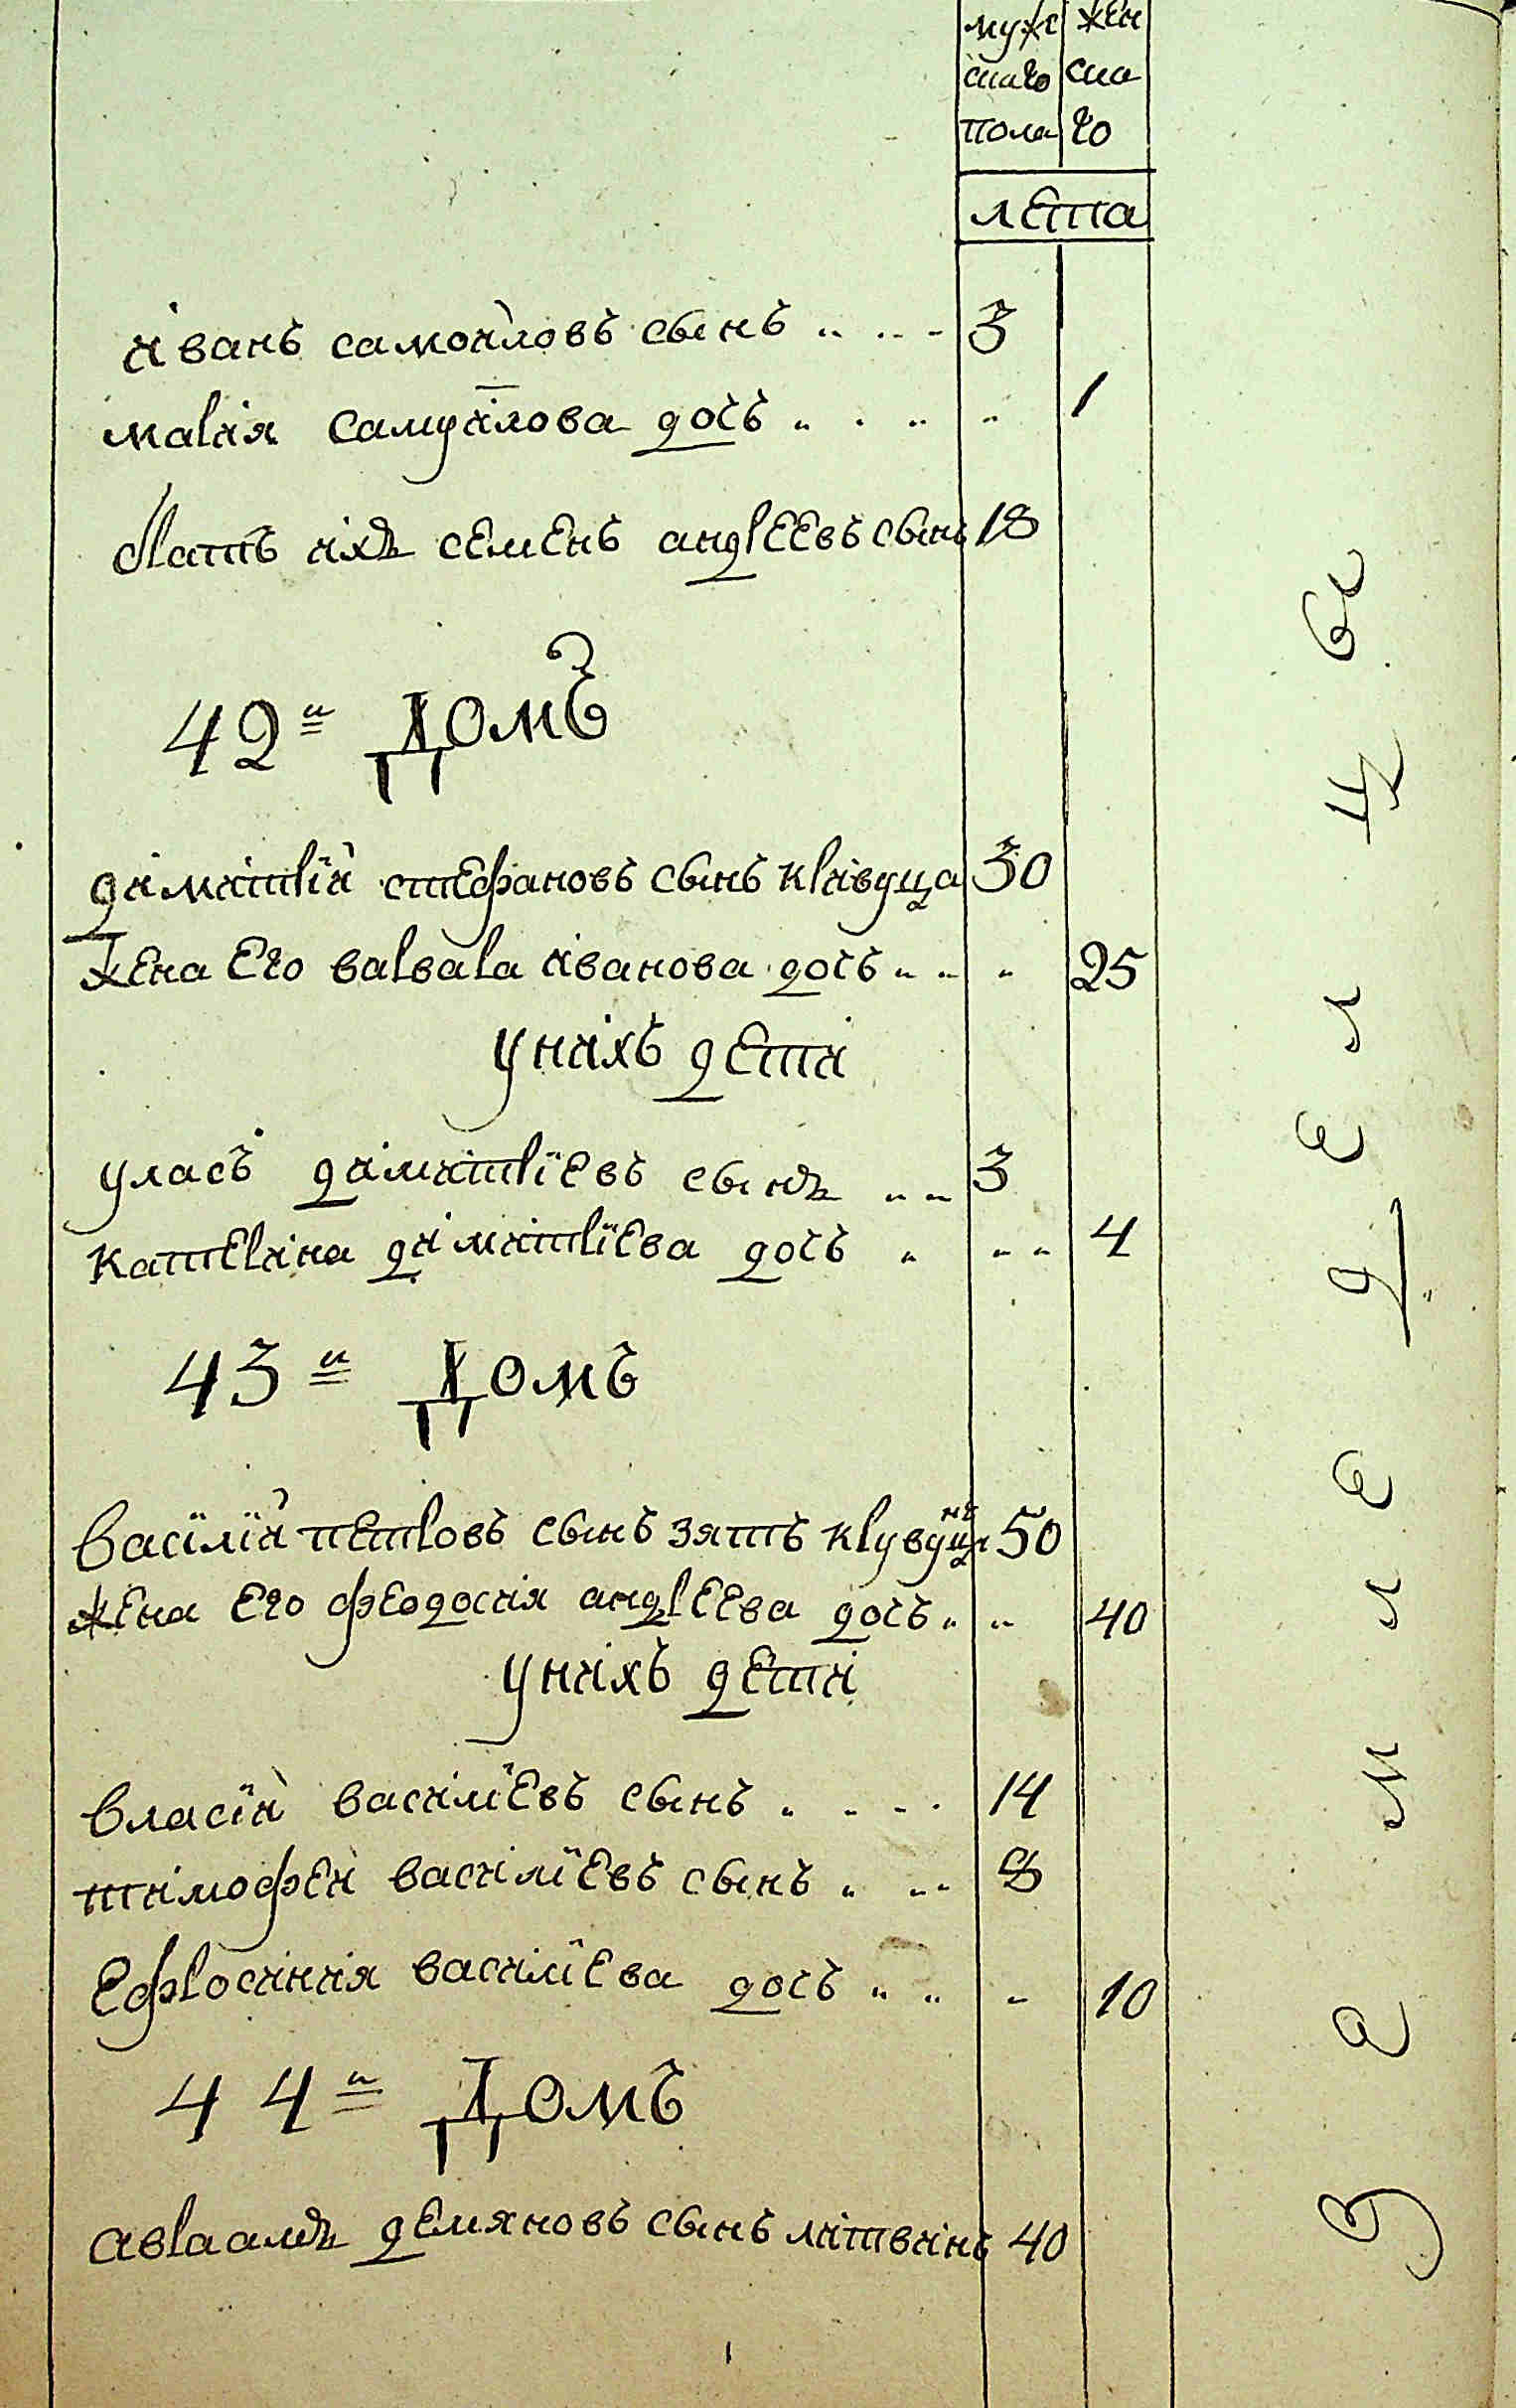 мужс
скаго
пола
жен
ска
го
лета
иванъ самойловъ сынъ 3
марія самуйлова дочъ 1
Матъ ихъ семенъ андреевъ сынъ 18
42й Домъ
димитрій стефановъ сынъ кривуца 30
жена его варвара иванова дочъ 25
у нихъ дети
уласъ димитріевъ сынъ 3
катерина димитріева дочъ 4
43й Домъ
Василій петровъ сынъ зятъ крувуц 50
жена его феодосия андреева дочъ 40
у нихъ дети
власій василіевъ сынъ 14
тимофей василіевъ сынъ 8
ефросиния василіева дочъ 10
44й Домъ
авраамъ демяновъ сынъ литвинъ 40
Земледельцы